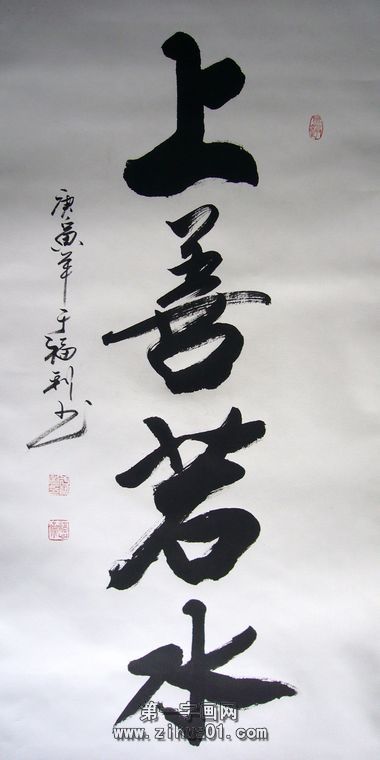 上善若水
庚寅年于福利书
第一字画网
www.zihua01.com